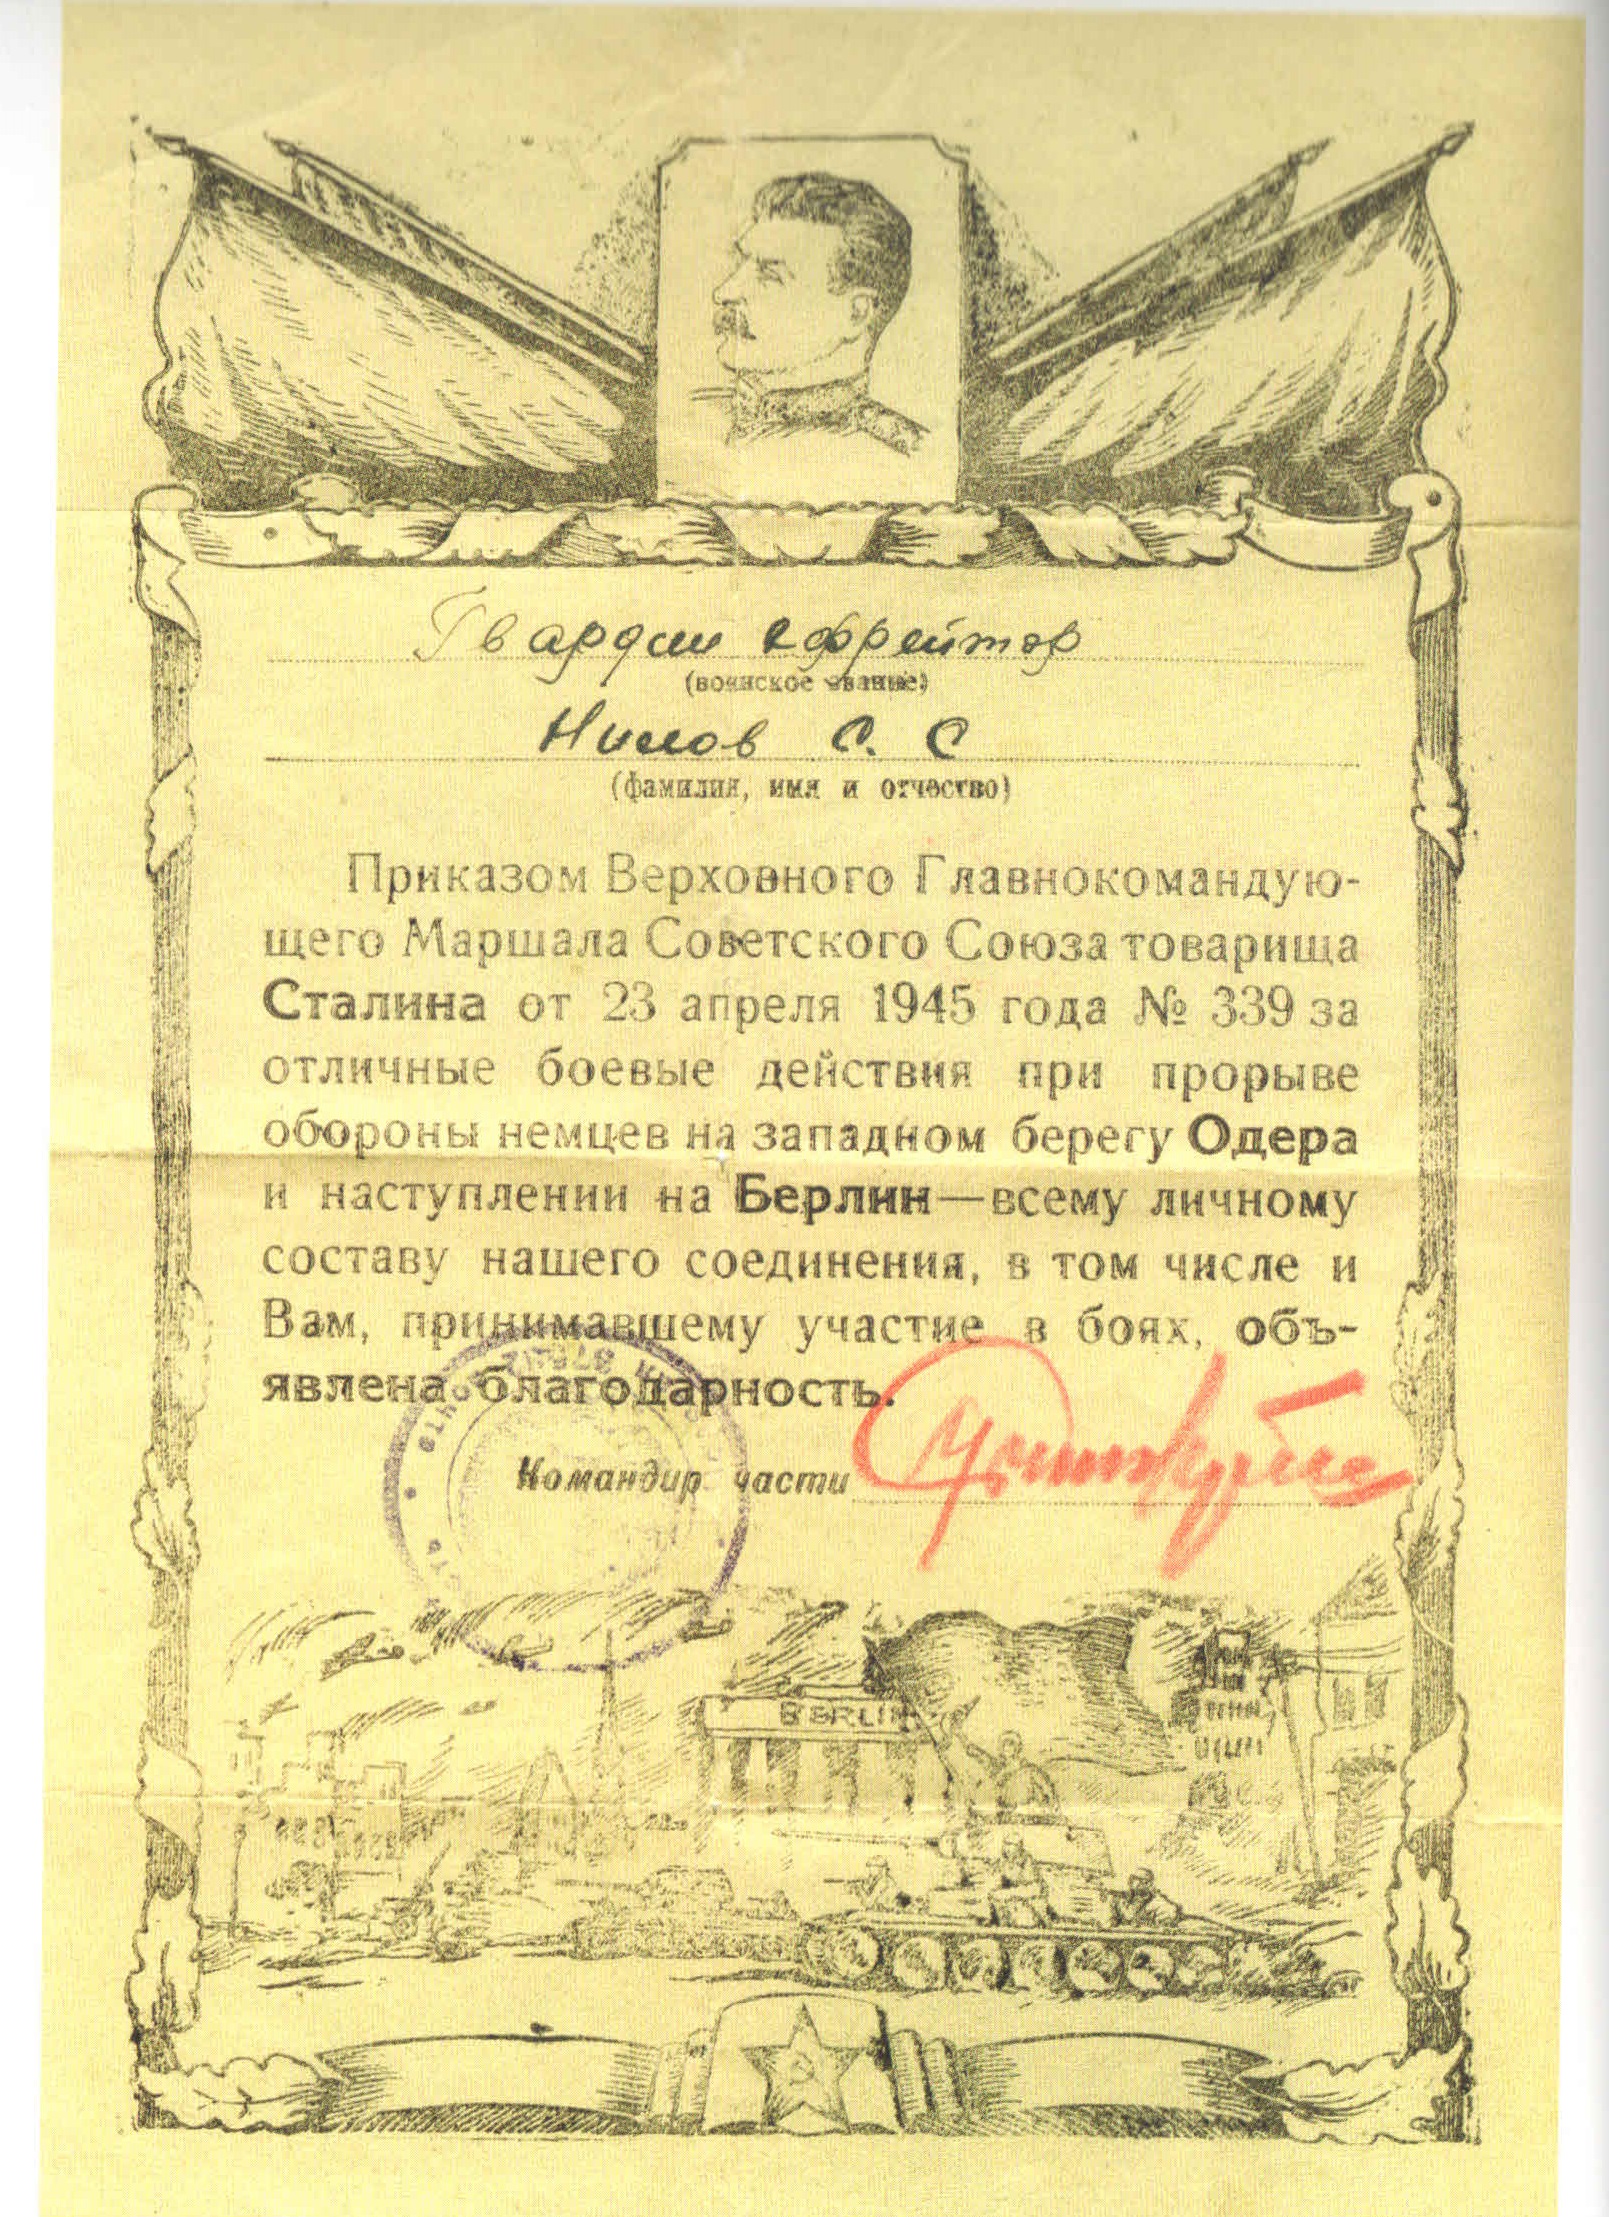 Гвардии ефрейтор
(воинское звание)
Нилов С. С
(фамилия, имя и отчество)
Приказом Верховного Главнокомандую-
щего Маршала Советского Союза товарища
Сталина от 23 апреля 1945 года № 339 за
отличные боевые действия при прорыве
обороны немцев на западном берегу Одера
и наступлении на Берлин—всему личному
составу нашего соединения, в том числе и
Вам, принимавшему участие в боях, объ-
явлена благодарность.
Командир части
BERLIN